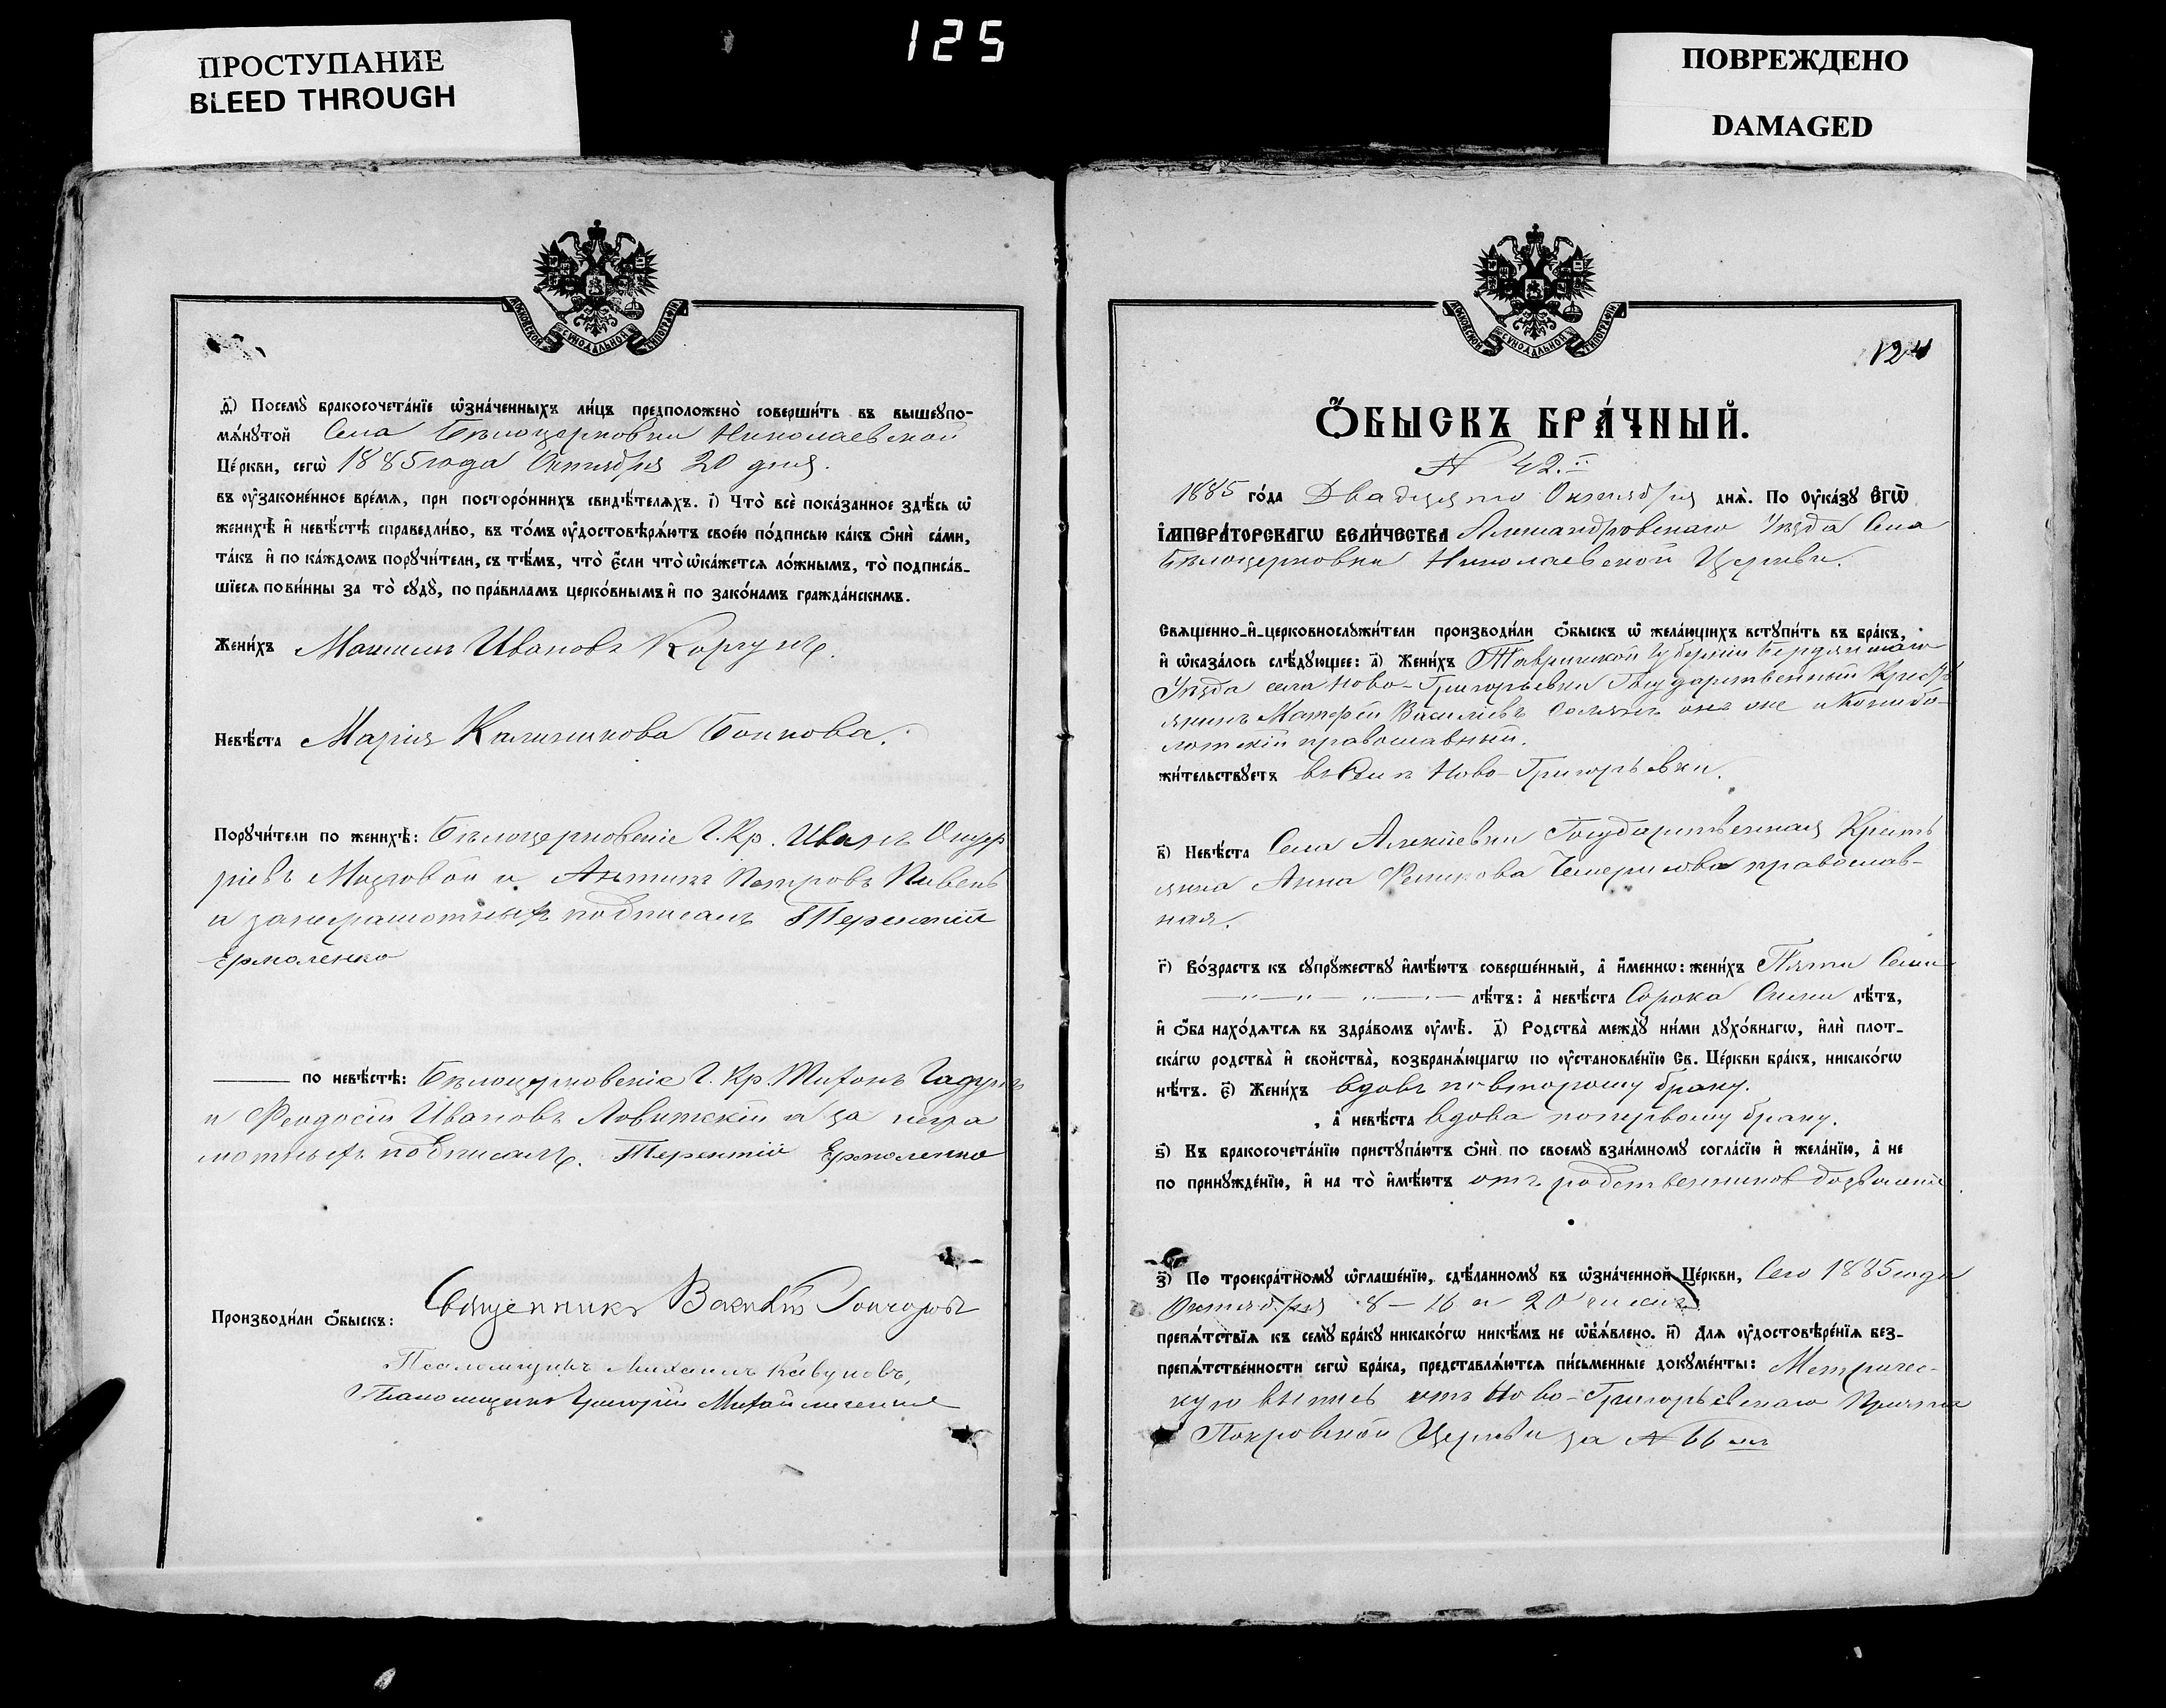 ПРОСТУПАНИЕ
BLEED THROUGH
125
ПОВРЕЖДЕНО
DAMAGED
МОСКОВСКОЙ СѴНОДАЛЬНОЙ ТИПОГРАФІИ
Посемꙋ̀ бракосочета́нїе ѡ҆зна́ченныхъ ли́цъ предположено̀ соверши́ть въ вышеꙋпо-
мѧ́нꙋтой Села Бѣлоцерковки Николаевской
Це́ркви, сегѡ̀ 1885 года Октября 20 дня.
въ ᲂу҆зако́ненное вре́мѧ, при посторо́ннихъ свидѣ́телѧхъ. і҃) Что̀ всѐ пока́занное здѣ́сь ѡ҆
женихѣ̀ и҆ невѣ́стѣ справедли́во, въ то́мъ ᲂу҆достовѣрѧ́ютъ свое́ю по́дписью ка́къ ѻ҆нѝ са́ми,
та́къ и҆ по ка́ждомъ порꙋчи́тели, съ тѣ́мъ, что̀ є҆́сли что̀ ѡ҆ка́жетсѧ ло́жнымъ, то̀ подписа́в-
шїесѧ пови́нны за то̀ сꙋдꙋ̀, по пра́виламъ церко́внымъ и҆ по зако́намъ гражда́нскимъ.
Жени́хъ Максимъ Ивановъ Коргунъ.
Невѣ́ста Марія Калиникова Бонкова.
Порꙋчи́тели по женихѣ̀: Бѣлоцерковскіе Г. Кр. Иванъ
и Антипъ Петровъ Пивень
и занеграмотныхъ подписалъ Терентій
Ермоленко
по невѣ́стѣ: Бѣлоцерковскіе Г. Кр. Тихонъ
и Феодосій Ивановъ Ловитскій и за негра
мотныхъ подписалъ. Терентій Ермоленко
Производи́ли ѻ҆́быскъ: Священникъ Гончаровъ
Псаломщикъ Михаилъ Кавуновъ,
Григорій Михайличенко
МОСКОВСКОЙ СѴНОДАЛЬНОЙ ТИПОГРАФІИ
124
Ѻ҆́БЫСКЪ БРА́ЧНЫЙ.
N 42.
1885 го́да Двадцято Октября днѧ̀. По ᲂу҆ка́зꙋ Є҆ГѠ̀
І҆МПЕРА́ТОРСКАГѠ ВЕЛИ́ЧЕСТВА Александровскаго Уѣзда Села
Бѣлоцерковки Николаевской Церкви.
Свѧще́нно-и҆-церковнослꙋжи́тели производи́ли ѻ҆́быскъ ѡ҆ жела́ющихъ встꙋпи́ть въ бра́къ,
и҆ ѡ҆каза́лось слѣ́дꙋющее: а҃) Жени́хъ Таврической Губерніи Бердянскаго
Уѣзда села Ново-Григорьевки Государственный Крестъ
янинъ Василіевъ онъ же
православный.
жи́тельствꙋетъ въ Селѣ Ново-Григорьевки.
в҃) Невѣ́ста Села Алексіевки Государственная Кресть
янка Анна православ-
ная.
г҃) Во́зрастъ къ сꙋпрꙋ́жествꙋ и҆мѣ́ютъ соверше́нный, а҆ и҆́меннѡ: жени́хъ Пяти
лѣ́тъ: а҆ невѣ́ста Сорока Семи лѣ́тъ,
и҆ ѻ҆́ба нахо́дѧтсѧ въ здра́вомъ ᲂу҆мѣ̀. д҃) Родства̀ междꙋ̀ ни́ми дꙋхо́внагѡ, и҆лѝ плот-
ска́гѡ родства̀ и҆ сво́йства, возбранѧ́ющагѡ по ᲂу҆становле́нїю Св. Це́ркви бра́къ, никако́гѡ
нѣ́тъ. є҃) Жени́хъ вдовъ повторому браку.
, а҆ невѣ́ста вдова попервому браку.
ѕ҃) Къ бракосочета́нїю пристꙋпа́ютъ ѻ҆нѝ по своемꙋ̀ взаи́мномꙋ согла́сїю и҆ жела́нїю, а҆ не
по принꙋжде́нїю, и҆ на то̀ и҆мѣ́ютъ отъ родственниковъ дозволеніе
з҃) По троекра́тномꙋ ѡ҆глаше́нїю, сдѣ́ланномꙋ въ ѡ҆зна́ченной Це́ркви, Сего 1885 года
Октября 8 – 16 и 20 чиселъ
препѧ́тствїѧ къ семꙋ̀ бра́кꙋ никако́гѡ никѣ́мъ не ѡ҆б̾ѧ́влено. и҃) Длѧ ᲂу҆достовѣре́нїѧ без-
препѧ́тственности сегѡ̀ бра́ка, представлѧ́ютсѧ пи́сьменные докꙋме́нты: Метричес-
кую выпись отъ Ново-Григорьевскаго Причта
Покровской Церкви за N 66